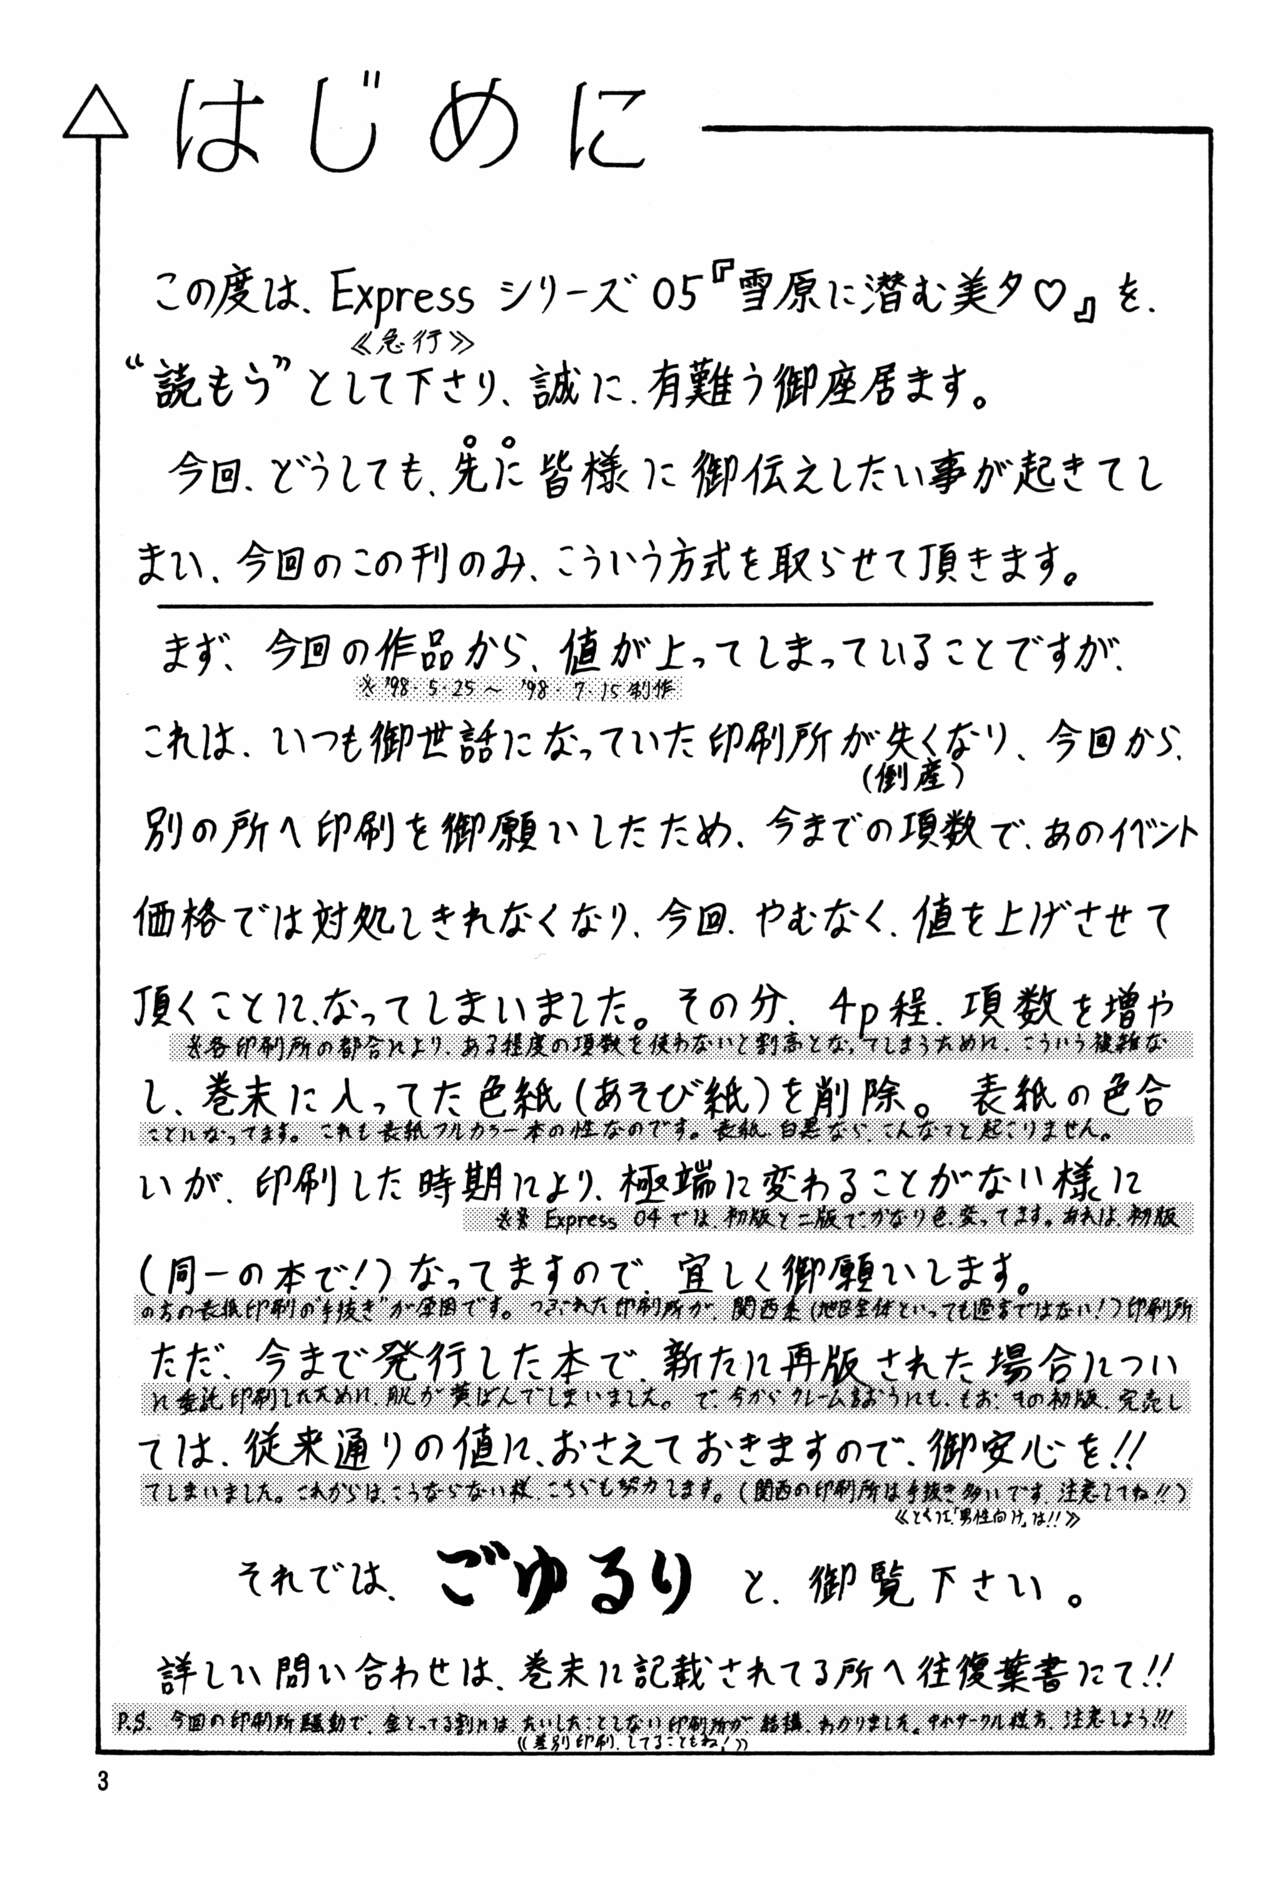 はじめに
この度は、Express シリーズ 05『雪原に潜む美夕♡』を、
≪急行≫
“読もう”として下さり、誠に、有難う御座居ます。
今回、どうしても、先に皆様に御伝えしたい事が起きてし
まい、今回のこの刊のみ、こういう方式を取らせて頂きます。
まず、今回の作品から、値が上ってしまっていることですが、
※'98・5・25～'98・7・15制作
これは、いつも御世話になっていた印刷所が失くなり、今回から、
(倒産)
別の所へ印刷を御願いしたため、今までの項数で、あのイベント
価格では対処しきれなくなり、今回、やむなく、値を上げさせて
頂くことに、なってしまいました。その分、4p程、項数を増や
※各印刷所の都合により、ある程度の項数を使わないと割高となってしまうために、こういう複雑な
し、巻末に入ってた色紙(あそび紙)を削除。表紙の色合
ことになってます。これも表紙フルカラー本の性なのです。表紙、白黒なら、こんなこと起こりません。
いが、印刷した時期により、極端に変わることがない様に
※※ Express 04では、初版と二版で、かなり色、変ってます。あれは、初版
(同一の本で!)なってますので、宜しく御願いします。
の方の表紙印刷の“手抜き”が原因です。つぶれた印刷所が、関西系(地区全体といっても過言ではない!)印刷所
ただ、今まで発行した本で、新たに再版された場合につい
に委託印刷したために、肌が黄ばんでしまいました。で、今からクレーム言おうにも、もお、その初版、完売し
ては、従来通りの値に、おさえておきますので、御安心を!!
てしまいました。これからは、こうならない様、こちらも努力します。(関西の印刷所は手抜き多いです、注意してね!!)
≪とくに「男性向け」は!!≫
それでは、ごゆるりと、御覧下さい。
詳しい問い合わせは、巻末に記載されてる所へ往復葉書にて!!
P.S. 今回の印刷所騒動で、金とってる割には、たいしたことしない印刷所が、結構、わかりました。中小サークル様方、注意しよう!!!
≪差別印刷、してることもね!≫
3